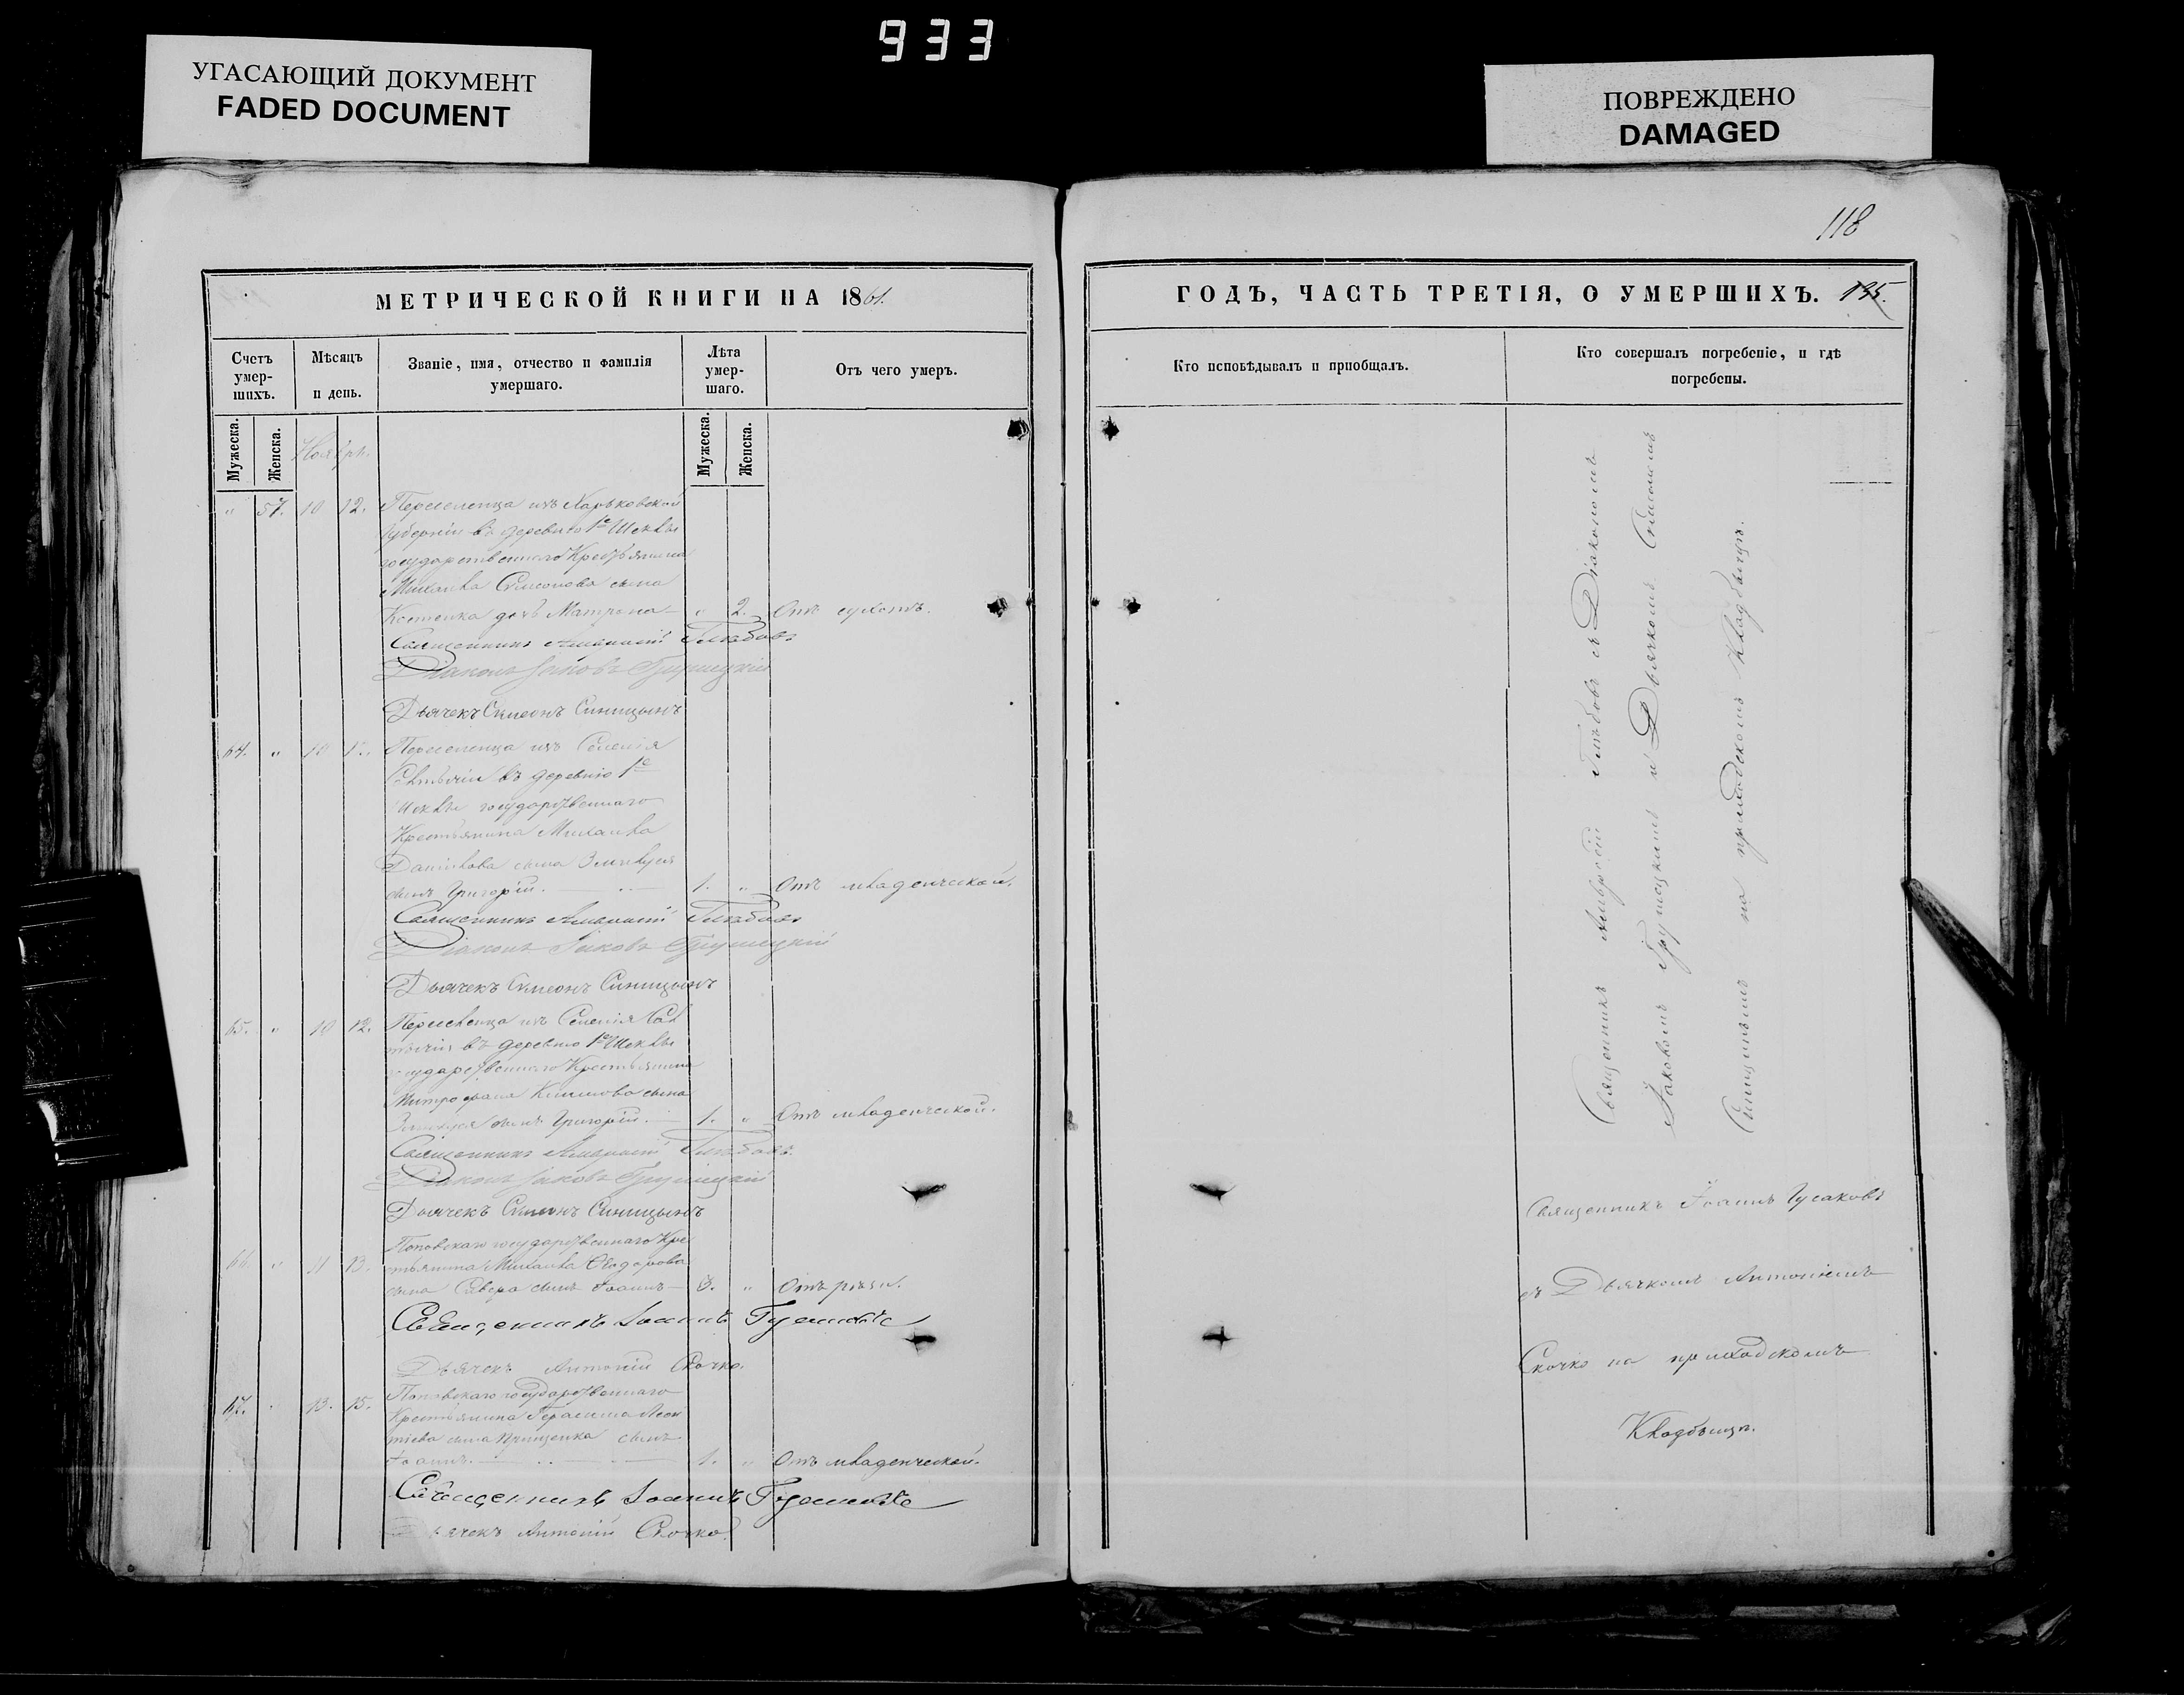 933
УГАСАЮЩИЙ ДОКУМЕНТ
FADED DOCUMENT
ПОВРЕЖДЕНО
DAMAGED
118
МЕТРИЧЕСКОЙ КНИГИ НА 1861.
Счетъ умер-шихъ.
Мѣсяцъ и день.
Званіе, имя, отчество и фамилія умершаго.
Лѣта умер-шаго.
Отъ чего умеръ.
Мужеска.
Женска.
Ноябрь.
Мужеска.
Женска.
" 57. 10 12. Переселенца изъ Харьковской
губерніи въ деревню 1е
государственнаго Крестьянина
Михаила Симеонова сына
Костенка дочь Матрона — " 2. Отъ
Священникъ Амвросій Глѣбовъ
Діаконъ Іаковъ Грушецкій
Дьячекъ Симеонъ Синицынъ
64. " 10 12. Переселенца изъ Селенія
въ деревню 1е
государственнаго
Крестьянина Михаила
Даніилова сына
сынъ Григорій. 1. " Отъ младенческой.
Священникъ Амвросій Глѣбовъ
Діаконъ Іаковъ Грушецкій
Дьячекъ Симеонъ Синицынъ
65. " 10 12. Переселенца изъ Селенія
въ деревню 1е
государственнаго Крестьянина
Митрофана сына
сынъ Григорій. 1. " Отъ младенческой.
Священникъ Амвросій Глѣбовъ
Діаконъ Іаковъ Грушецкій
Дьячекъ Симеонъ Синицынъ
66. " 11 13. Поповскаго государственнаго Кре
стьянина Михаила Ѳеодорова
сына сынъ Іоаннъ — 3. "
Священникъ Іоаннъ Гусаковъ
Дьячекъ Антоній Скочко.
67. " 13. 15. Поповскаго государственнаго
Крестьянина Герасима Леон
тіева сына сынъ
Іоаннъ. 1. " Отъ младенческой.
Священникъ Іоаннъ Гусаковъ
Дьячекъ Антоній Скочко
ГОДЪ, ЧАСТЬ ТРЕТІЯ, О УМЕРШИХЪ. 135.
Кто исповѣдывалъ и пріобщалъ.
Кто совершалъ погребеніе, и гдѣ погребены.
Священникъ Амвросій Глѣбовъ съ Діакономъ
Іаковомъ Грушецкимъ и Дьячкомъ Симеономъ
Синицынымъ на приходскомъ Кладбищѣ.
Священникъ Іоаннъ Гусаковъ
съ Дьячкомъ Антоніемъ
Скочко на приходскомъ
Кладбищѣ.